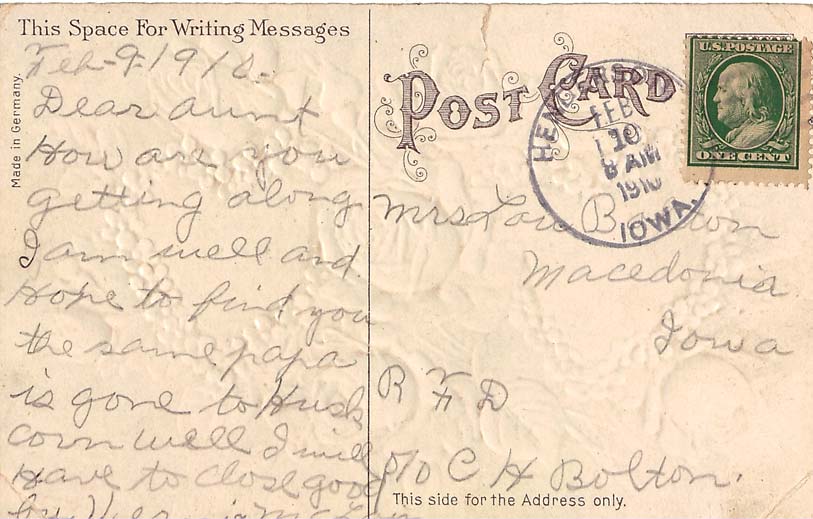 This Space For Writing Messages
Made in Germany.
Feb-9-1910.
Dear aunt
How are you
getting along
I am well and
Hope to find you
the same papa
is gone to Husk
corn well I will
Have to close good
by
POST CARD
FEB
10
8 AM
1910
IOWA.
U.S. POSTAGE
ONE CENT
Mrs Lou
Macedonia
Iowa
R F D
C H Bolton.
This side for the Address only.